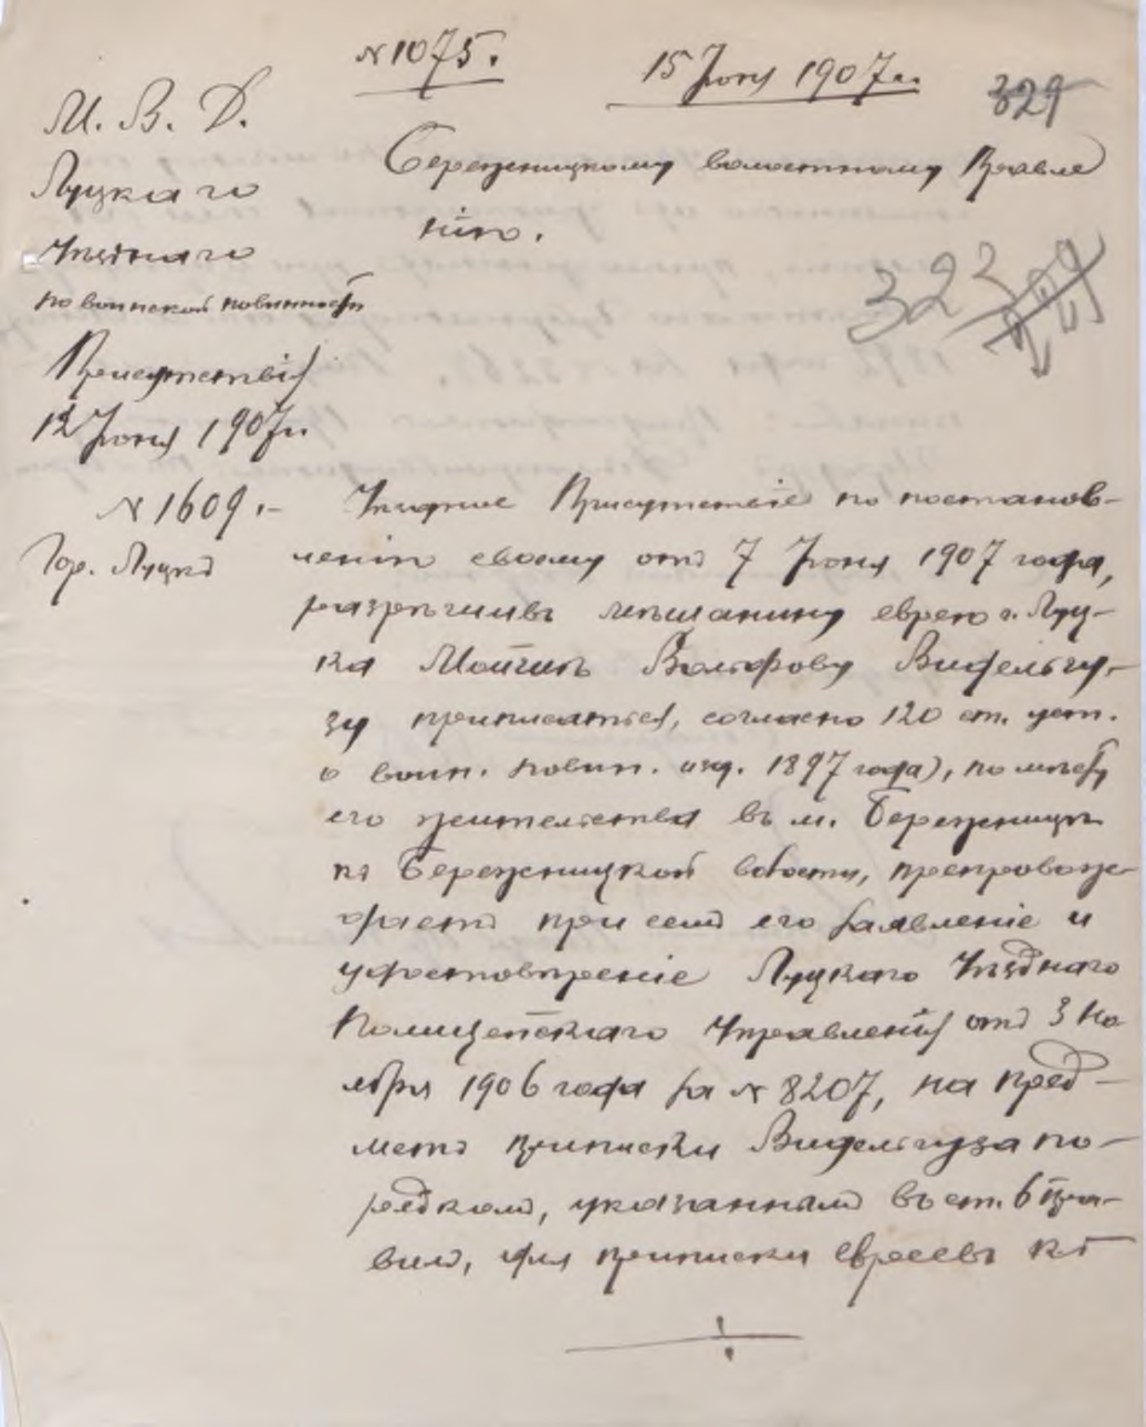 № 1075.
15 Іюня 1907 г.
329
М. В. Д.
Луцкаго
Уѣзднаго
по воинской повинности
Присутствія
12 Іюня 1907 г.
№ 1609.-
Гор. Луцкъ
Бережницкому волостному Правле
нію.
323
Уѣздное Присутствіе по постанов-
ленію своему отъ 7 Іюня 1907 года,
разрѣшивъ мѣщанину еврею г. Луц-
ка Вольфову Видельгу-
зу приписаться, согласно 120 ст. уст.
о воин. повин. изд. 1897 года), по мѣсту
его жительства въ м. Бережницѣ
Бережницкой волости, препровож-
даетъ при семъ его заявленіе и
удостовѣреніе Луцкаго Уѣзднаго
Полицейскаго Управленія отъ 3 Но
ября 1906 года за № 8207, на пред-
метъ приписки Видельгуза по-
рядкомъ, указаннымъ въ ст. 6 Пра-
вилъ, для приписки евреевъ къ